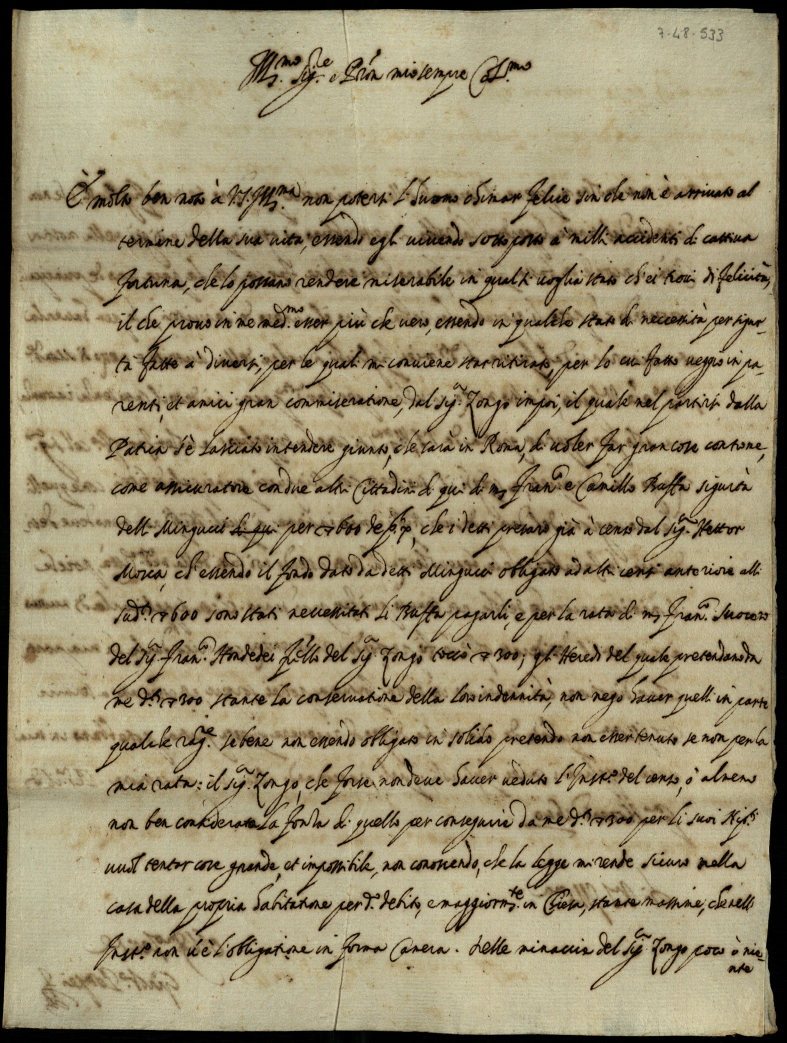 7-48-533
Ill.mo Sig.re e Pron mio sempre Col.mo
È molto ben noto à V.S. Ill.ma non potersi l'huomo chimar felice sin che non è arrivato al
termine della sua vita, essendo egli vivendo sottoposto à mille accidenti di cattiva
fortuna, che lo possano rendere miserabile in qualsi voglia stato ch'ei trovi di felicità,
il che provo in me med.mo esser più che vero, essendo in qualche stato di neccesità per sigur-
tà fatte à diversi, per le quali mi conviene star ritirato, per lo cui fatto veggio in pa-
renti, et amici gran commiseratione, dal sig.r Zongo impoi, il quale nel partirsi dalla
Patria s'è lasciato intendere giunto, che sarà in Roma, di voler far gran cose contro me,
come assicuratore con due altri Cittadini di qui di m. Fran.co e Camillo Buffa sigurtà
delli Mingucci di qui per 600 de, che i detti presaro già à censo dal sig.r Hettor
Mosca, ch'essendo il fondo dato da detti Mingucci obligato ad altri censi anteriori alli
sud.i 600 sono stati neccessitati li Buffa pagarli, e per la rata di m. Fran.co suocero
del sig.r Fran.co Hondedei fr'ello del sig.r Zongo toccò 300; gl'Heredi del quale pretendano da
me d.i 300 stante la conservatione della loro indennità, non nego haver quelli in parte
qualche rag.e se bene non essendo obligato in solido pretendo non esser tenuto se non per la
mia rata: il sig.r Zongo, che forse non deve haver veduto l'Instr.o del censo, ò almeno
non ben considerata la forza di quello per conseguire da me d.i 300 per li suoi Nip.i
vuol tentar cose grande, et impossibile, non conoscendo, che la legge mi rende sicuro nella
casa della propria habitatione per d.o debito, e maggiorm.te in Chiesa, stante massime, che nell
Instr.o non v'è l'obligat.ne in forma Camera. delle minaccie del sig.r Zongo poco ò nie-
nte